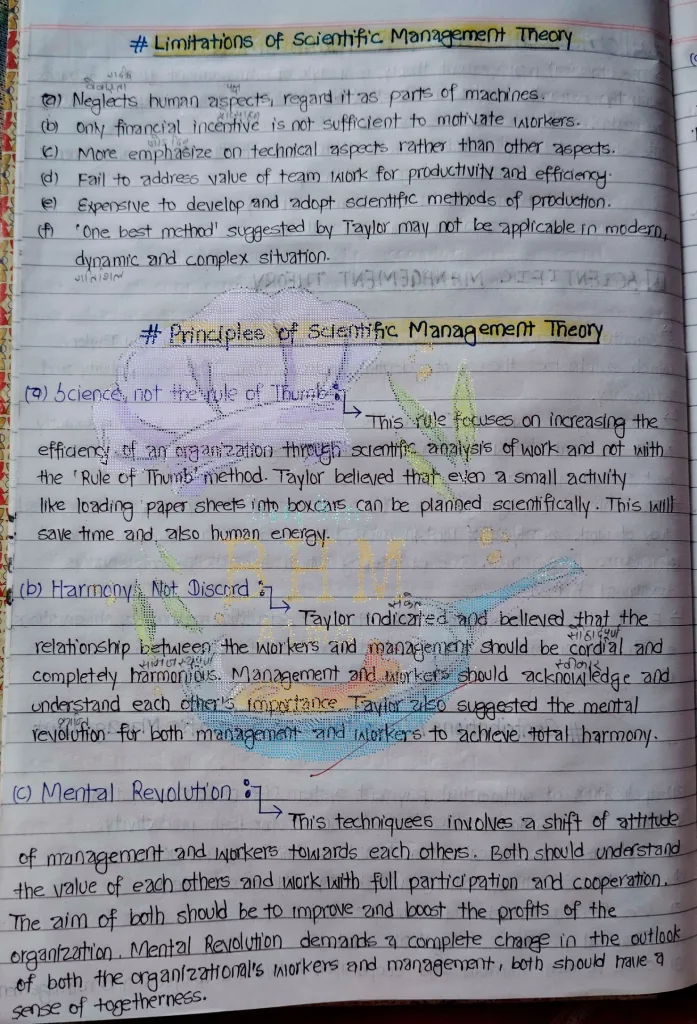 # Limitations of Scientific Management Theory
(a) Neglects human aspects, regard it as parts of machines.
(b) only financial incentive is not sufficient to motivate workers.
(c) More emphasize on technical aspects rather than other aspects.
(d) Fail to address value of team work for productivity and efficiency.
(e) Expensive to develop and adopt scientific methods of production.
(f) 'One best method' suggested by Taylor may not be applicable in modern,
dynamic and complex situation.
गतिशिल
# Principles of Scientific Management Theory
(a) Science, not the rule of Thumb :
This rule focuses on increasing the
efficiency of an organization through scientific analysis of work and not with
the 'Rule of Thumb' method. Taylor believed that even a small activity
like loading paper sheets into boxcars can be planned scientifically. This will
save time and also human energy.
BHM
(b) Harmony, Not Discord :
संकेत
Taylor indicated and believed that the
सौहार्दपूर्ण
relationship between the workers and management should be cordial and
completely harmonious. Management and workers should acknowledge and
understand each other's importance. Taylor also suggested the mental
revolution for both management and workers to achieve total harmony.
(c) Mental Revolution :
This techniquees involves a shift of attitude
of management and workers towards each others. Both should understand
the value of each others and work with full participation and cooperation.
The aim of both should be to improve and boost the profits of the
organization. Mental Revolution demands a complete change in the outlook
of both the organizational's workers and management, both should have a
sense of togetherness.